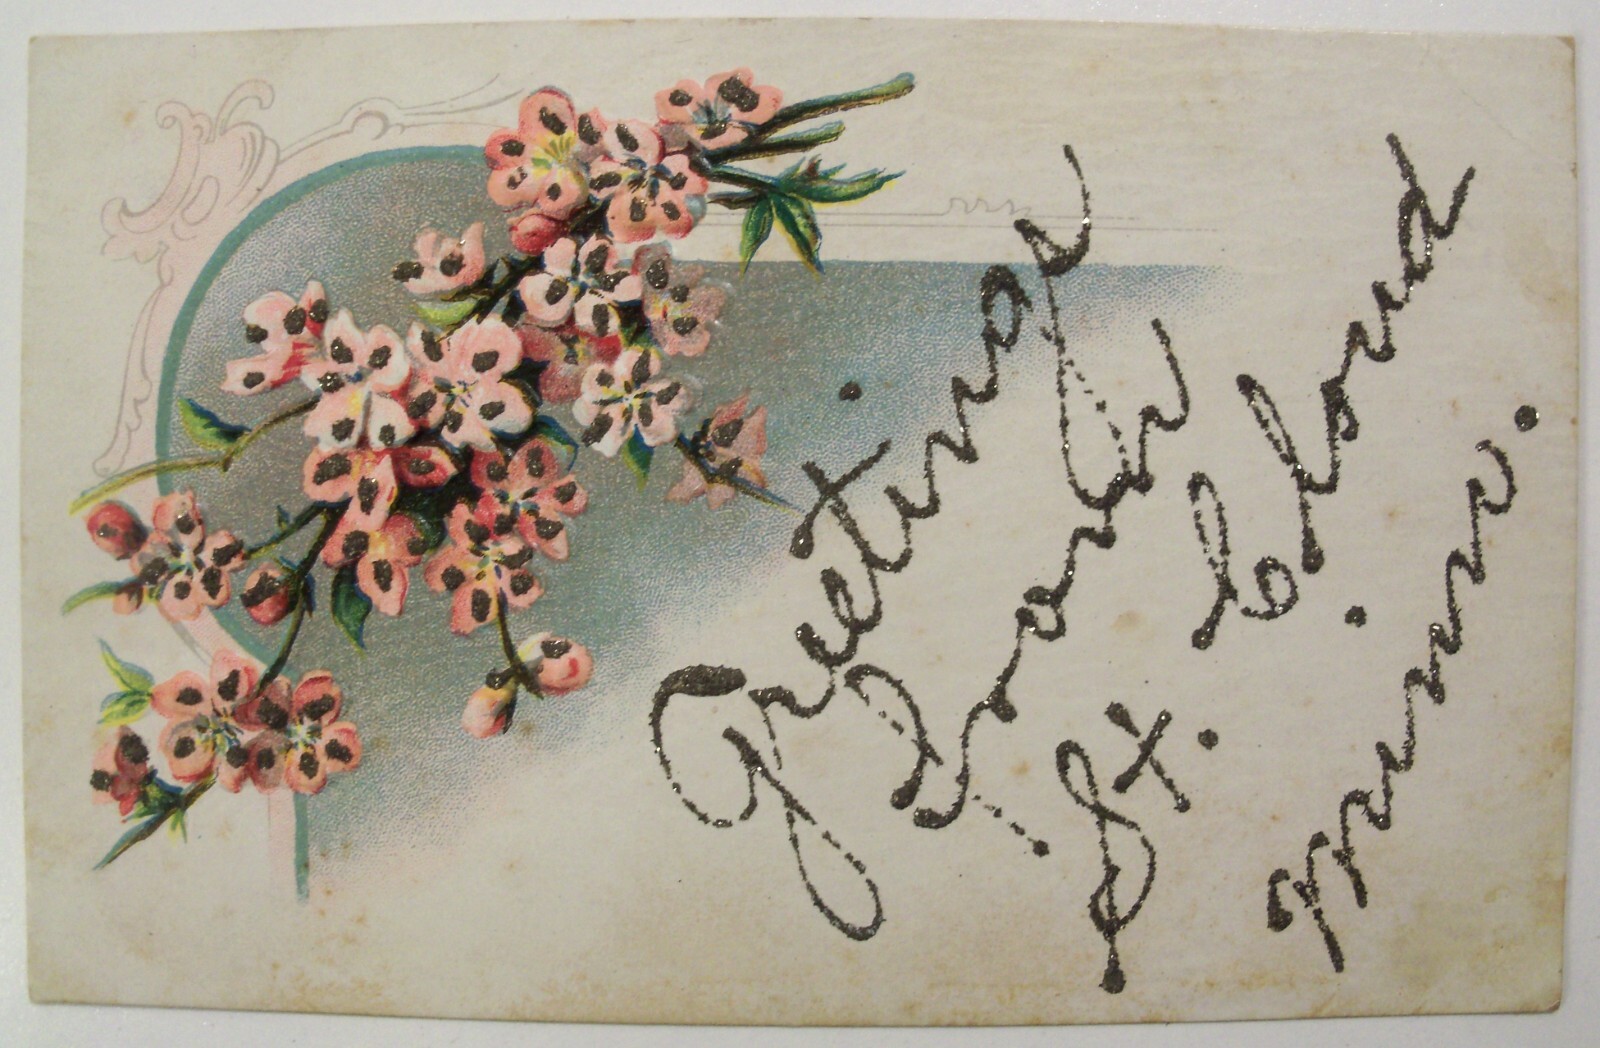 Greetings
from
St. Cloud
Minn.